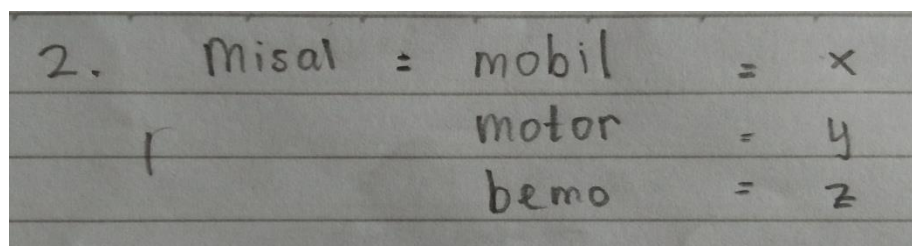 2. Misal = mobil = x
motor = y
bemo = z